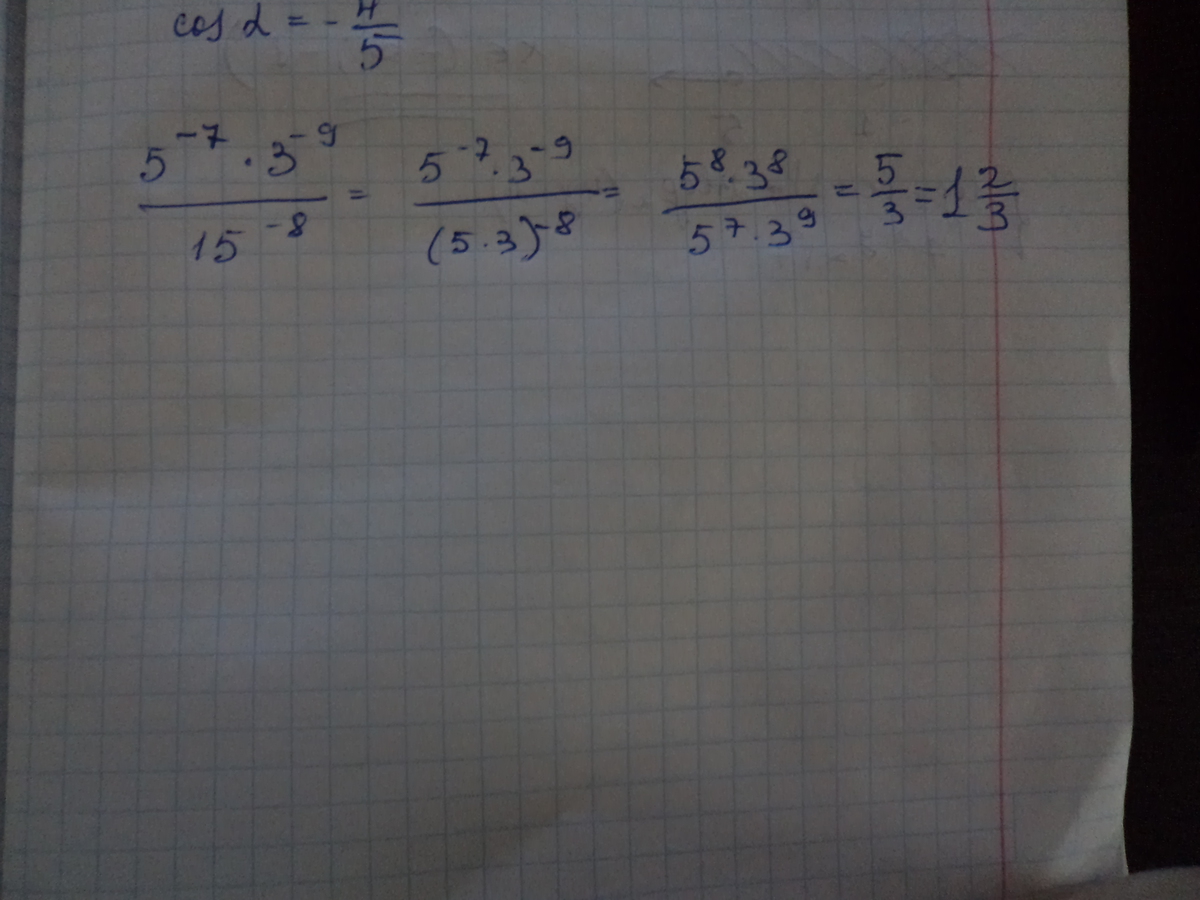 cos α = - 4/5
5^-7 · 3^-9 / 15^-8 = 5^-7 · 3^-9 / (5 · 3)^-8 = 5^8 · 3^8 / 5^7 · 3^9 = 5/3 = 1 2/3